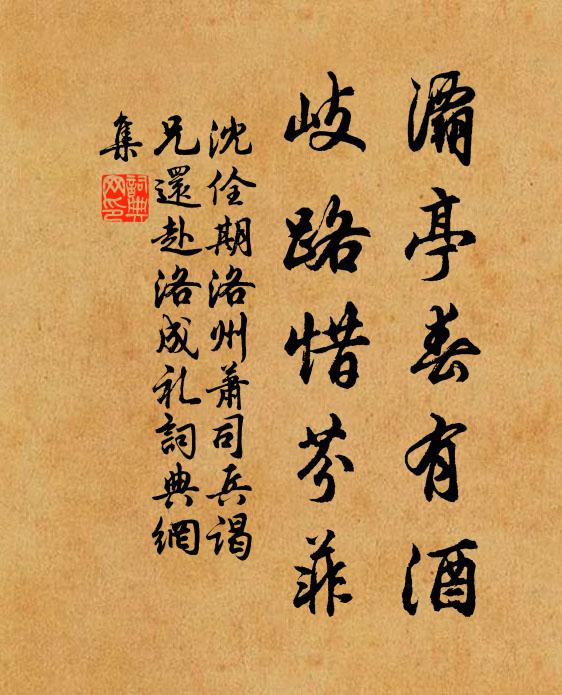 灞亭春有酒
岐路惜芬菲
沈佺期洛州萧司兵谒
兄還赴洛成礼詞典網
集
詞典网印